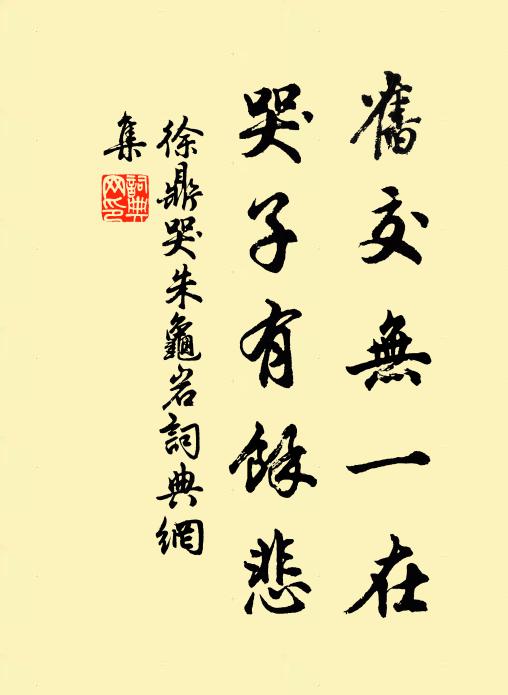 舊交無一在
哭子有餘悲
徐鼎哭朱龜岩詞典網
集
詞典
網印